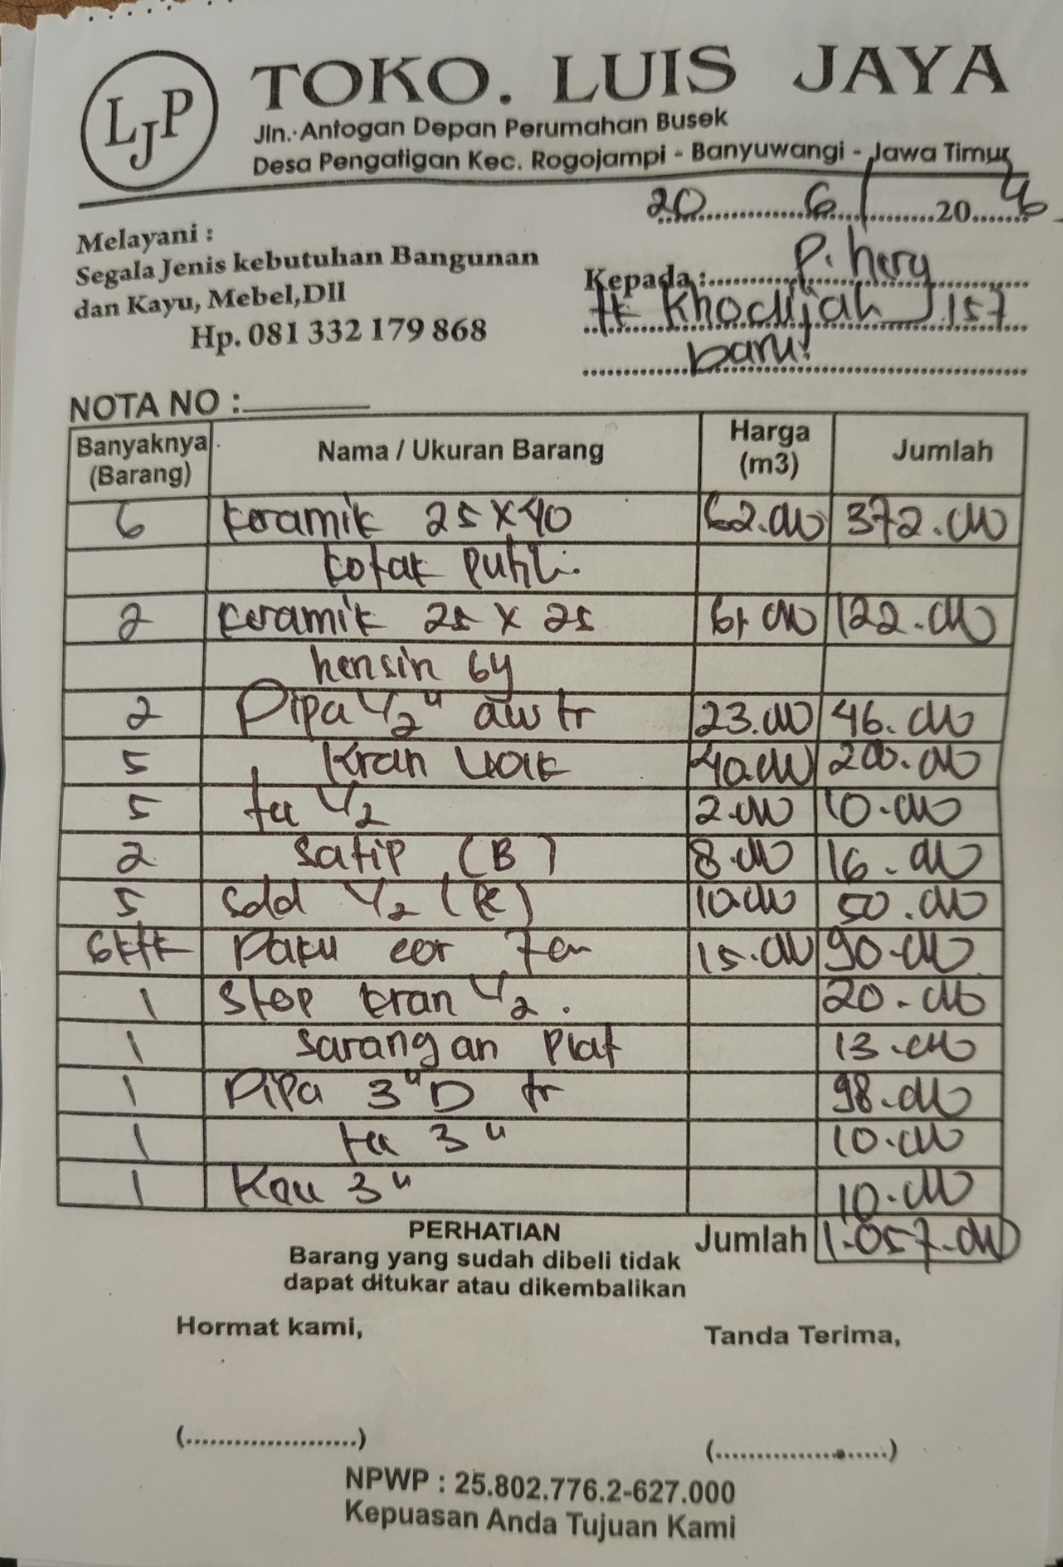 LJP
TOKO. LUIS JAYA
Jln. Antogan Depan Perumahan Busek
Desa Pengatigan Kec. Rogojampi - Banyuwangi - Jawa Timur
20 6 20
Melayani :
Segala Jenis kebutuhan Bangunan
dan Kayu, Mebel,Dll
Hp. 081 332 179 868
Kepada : P. hery
tk Khodijah 157
baru
NOTA NO :
Banyaknya (Barang) Nama / Ukuran Barang Harga (m3) Jumlah
6 keramik 25 x 40 62.000 372.000
kotak putih.
2 keramik 25 x 25 61.000 122.000
hensin 6y
2 Pipa 1/2" aw tr 23.000 46.000
5 Kran 40.000 200.000
5 tee 1/2 2.000 10.000
2 satip (B) 8.000 16.000
5 sdd 1/2 (k) 10.000 50.000
6 paku cor 7cm 15.000 90.000
1 Stop kran 1/2. 20.000
1 sarangan plat 13.000
1 Pipa 3" D tr 98.000
1 tee 3" 10.000
1 3" 10.000
PERHATIAN
Jumlah 1.057.000
Barang yang sudah dibeli tidak
dapat ditukar atau dikembalikan
Hormat kami,
Tanda Terima,
(......................)
(......................)
NPWP : 25.802.776.2-627.000
Kepuasan Anda Tujuan Kami